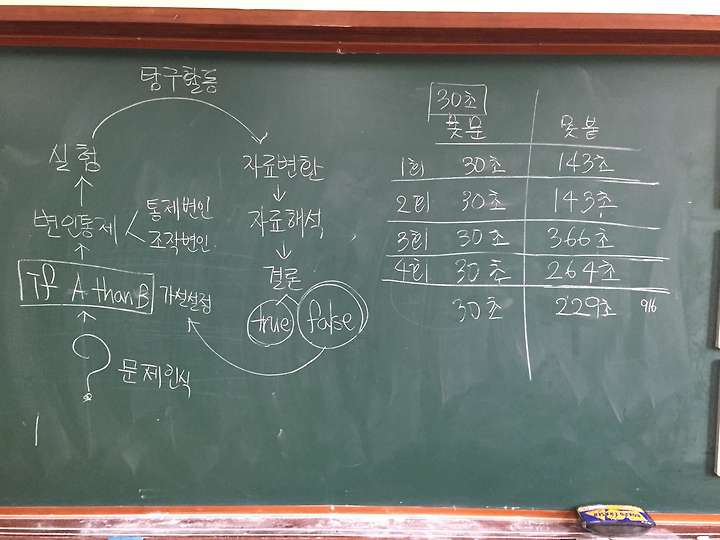 탐구활동
실험
변인통제
통제변인
조작변인
If A than B
가설설정
?
문제인식
자료변환
자료해석
결론
true false
30초
풋문 못붙
1회 30초 143초
2회 30초 143초
3회 30초 366초
4회 30초 264초
30초 229초 916